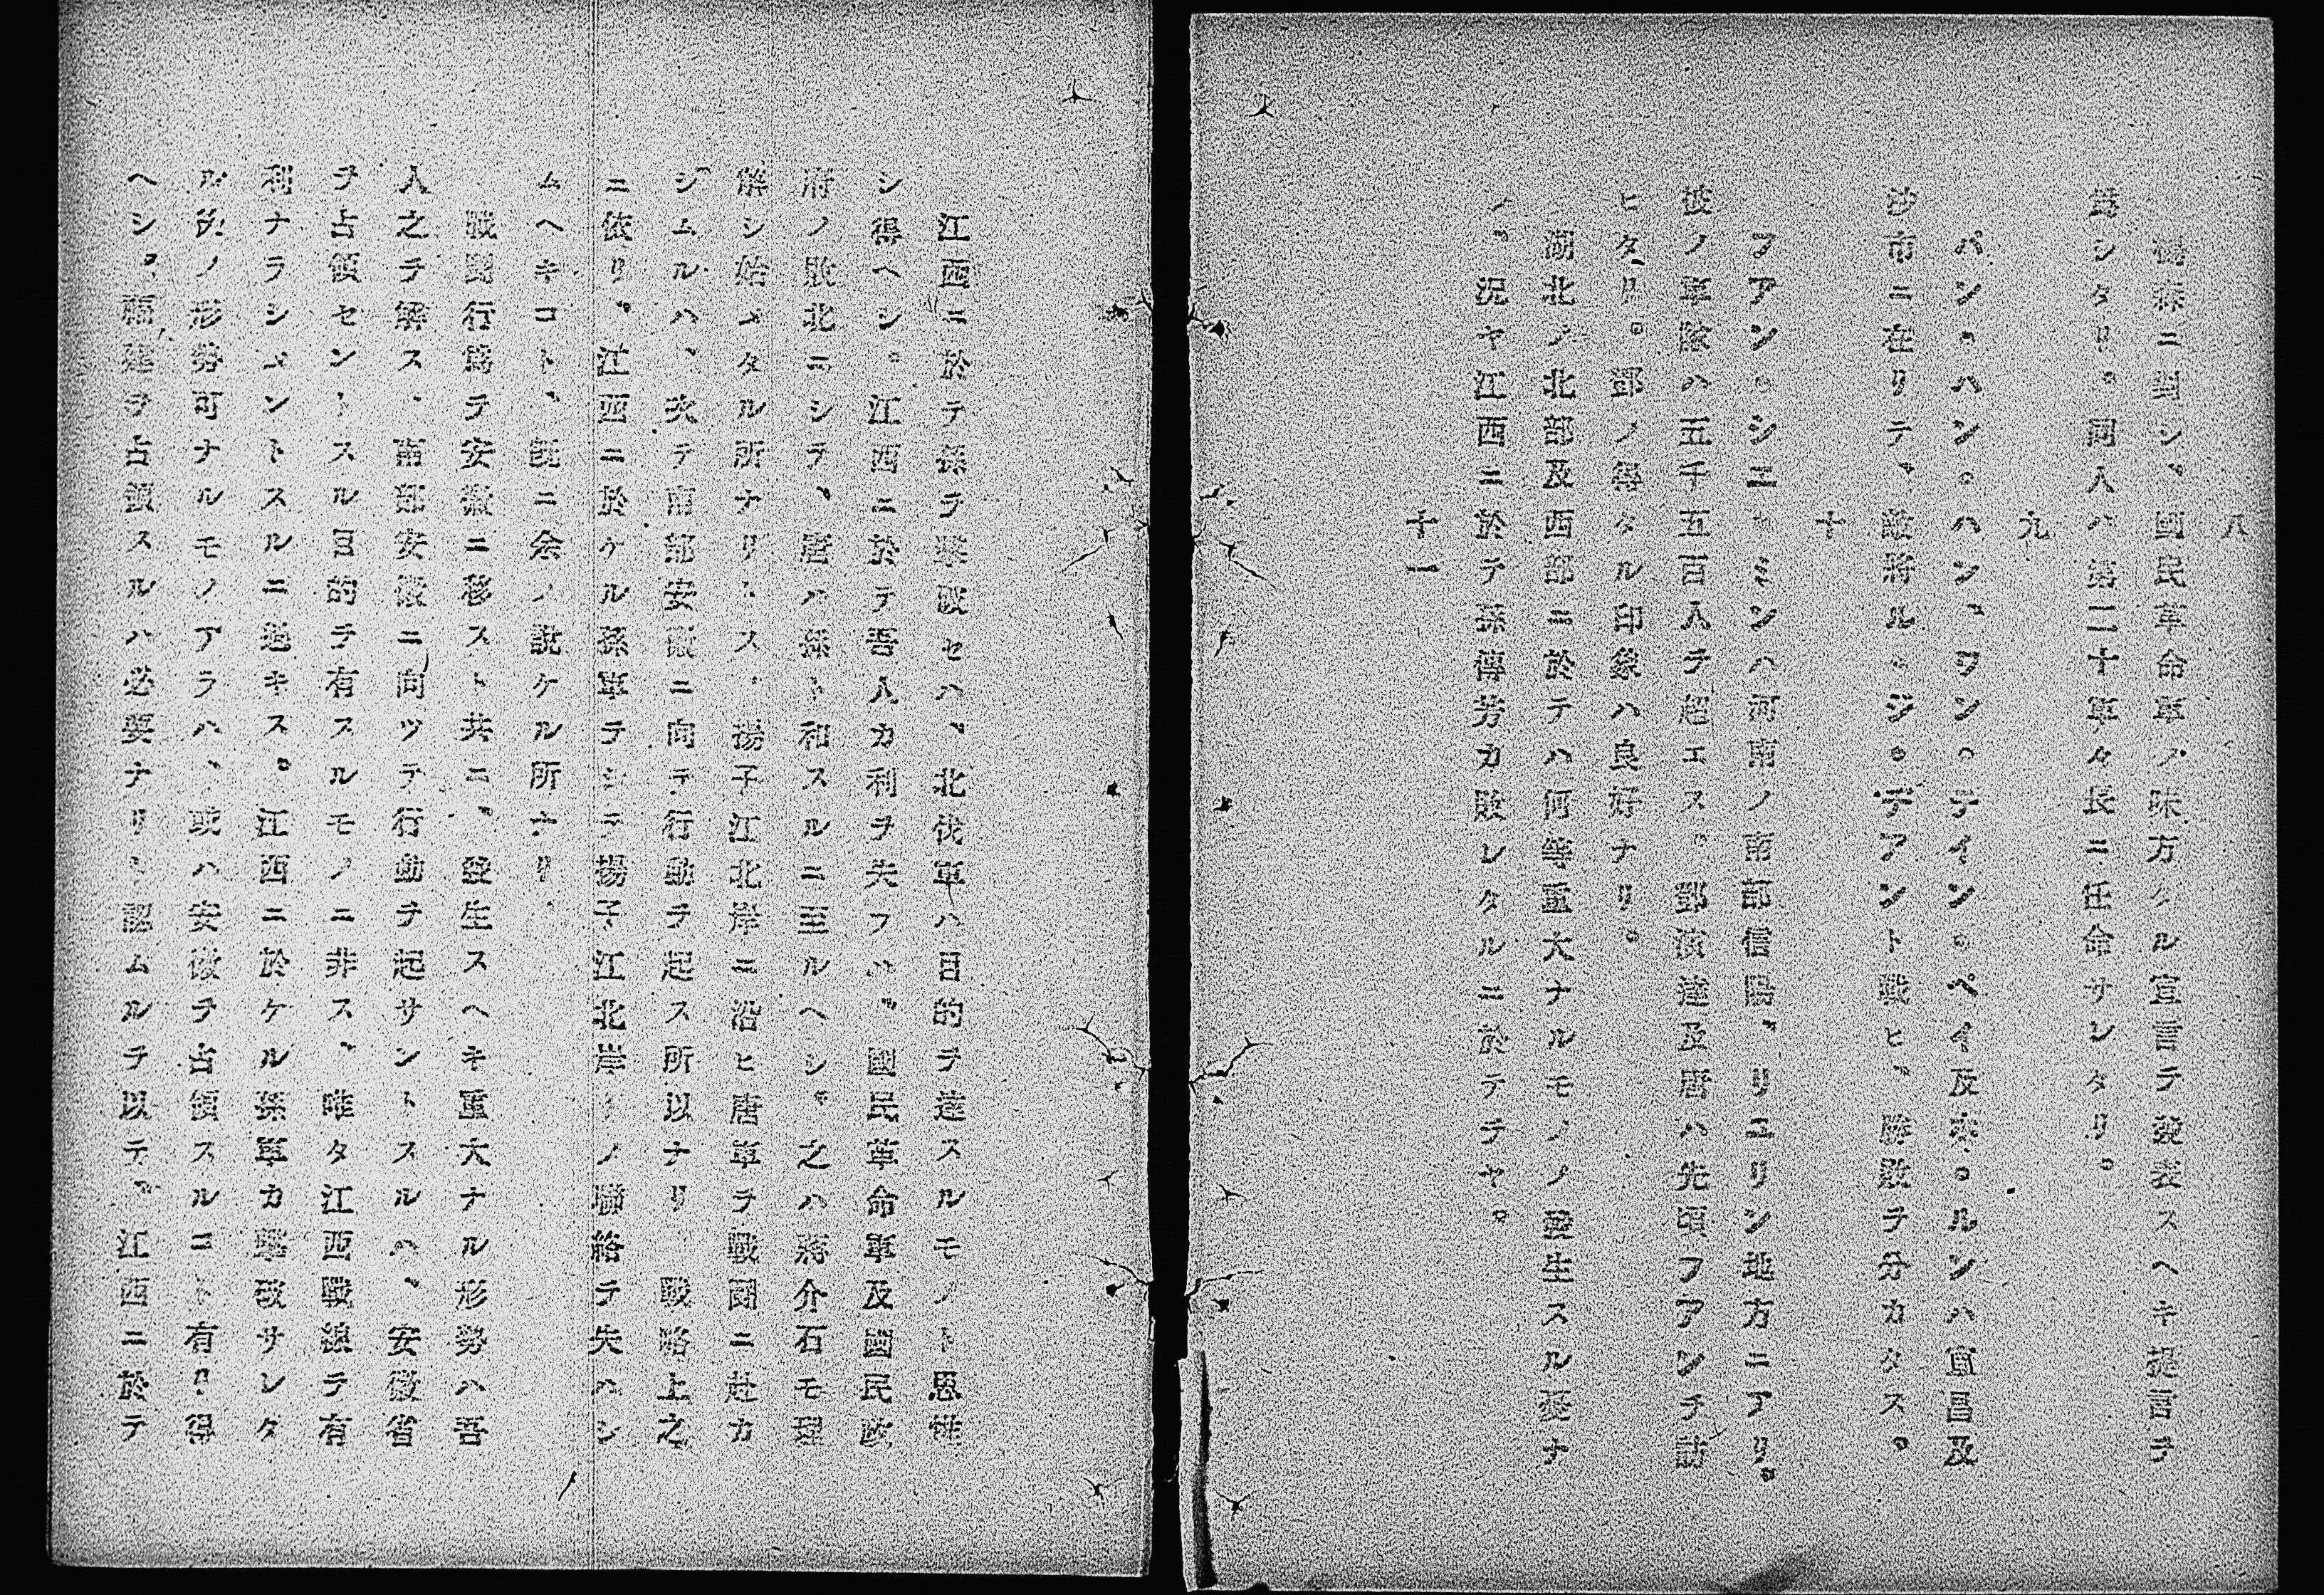 八
楊森ニ對シ、國民革命軍ノ味方タル宣言ヲ發表スヘキ提言ヲ
爲シタリ。同人ハ第二十軍々長ニ任命サレタリ。
九
パン・ハン。ハン、ワン。テイン。ペイ及ホ。ルンハ宜昌及
沙市ニ在リテ、敵將ル・ジ。デアント戰ヒ、勝敗ヲ分カタス。
十
フアン。シニ・ミンハ河南ノ南部信陽、リユリン地方ニアリ。
彼ノ軍隊ハ五千五百人ヲ超エス。鄧演達及唐ハ先頃フアンヲ訪
ヒタリ。鄧ノ得タル印象ハ良好ナリ。
湖北ノ北部及西部ニ於テハ何等重大ナルモノノ發生スル憂ナ
ク。況ヤ江西ニ於テ孫傳芳カ敗レタルニ於テヲヤ。
十一
江西ニ於テ孫ヲ撃破セハ、北伐軍ハ目的ヲ達スルモノト思惟
シ得ヘシ。江西ニ於テ吾人カ利ヲ失フハ、國民革命軍及國民政
府ノ敗北ニシテ、唐ハ孫ト和スルニ至ルヘシ。之ハ蔣介石モ理
解シ始メタル所ナリトス、揚子江北岸ニ沿ヒ唐軍ヲ戰鬪ニ赴カ
シムルハ、次テ南部安徽ニ向テ行動ヲ起ス所以ナリ 戰略上之
ニ依リ、江西ニ於ケル孫軍ヲシテ揚子江北岸トノ聯絡ヲ失ハシ
ムヘキコト、既ニ余ノ説ケル所ナリ、
戰鬪行爲ヲ安徽ニ移スト共ニ、發生スヘキ重大ナル形勢ハ吾
人之ヲ解ス、南部安徽ニ向ツテ行動ヲ起サントスルハ、安徽省
ヲ占領セントスル目的ヲ有スルモノニ非ス、唯タ江西戰線ヲ有
利ナラシメントスルニ過キス。江西ニ於ケル孫軍カ撃破サレタ
ル後ノ形勢可ナルモノアラハ、或ハ安徽ヲ占領スルコト有リ得
ヘシ、福建ヲ占領スルハ必要ナリト認ムルヲ以テ、江西ニ於テ